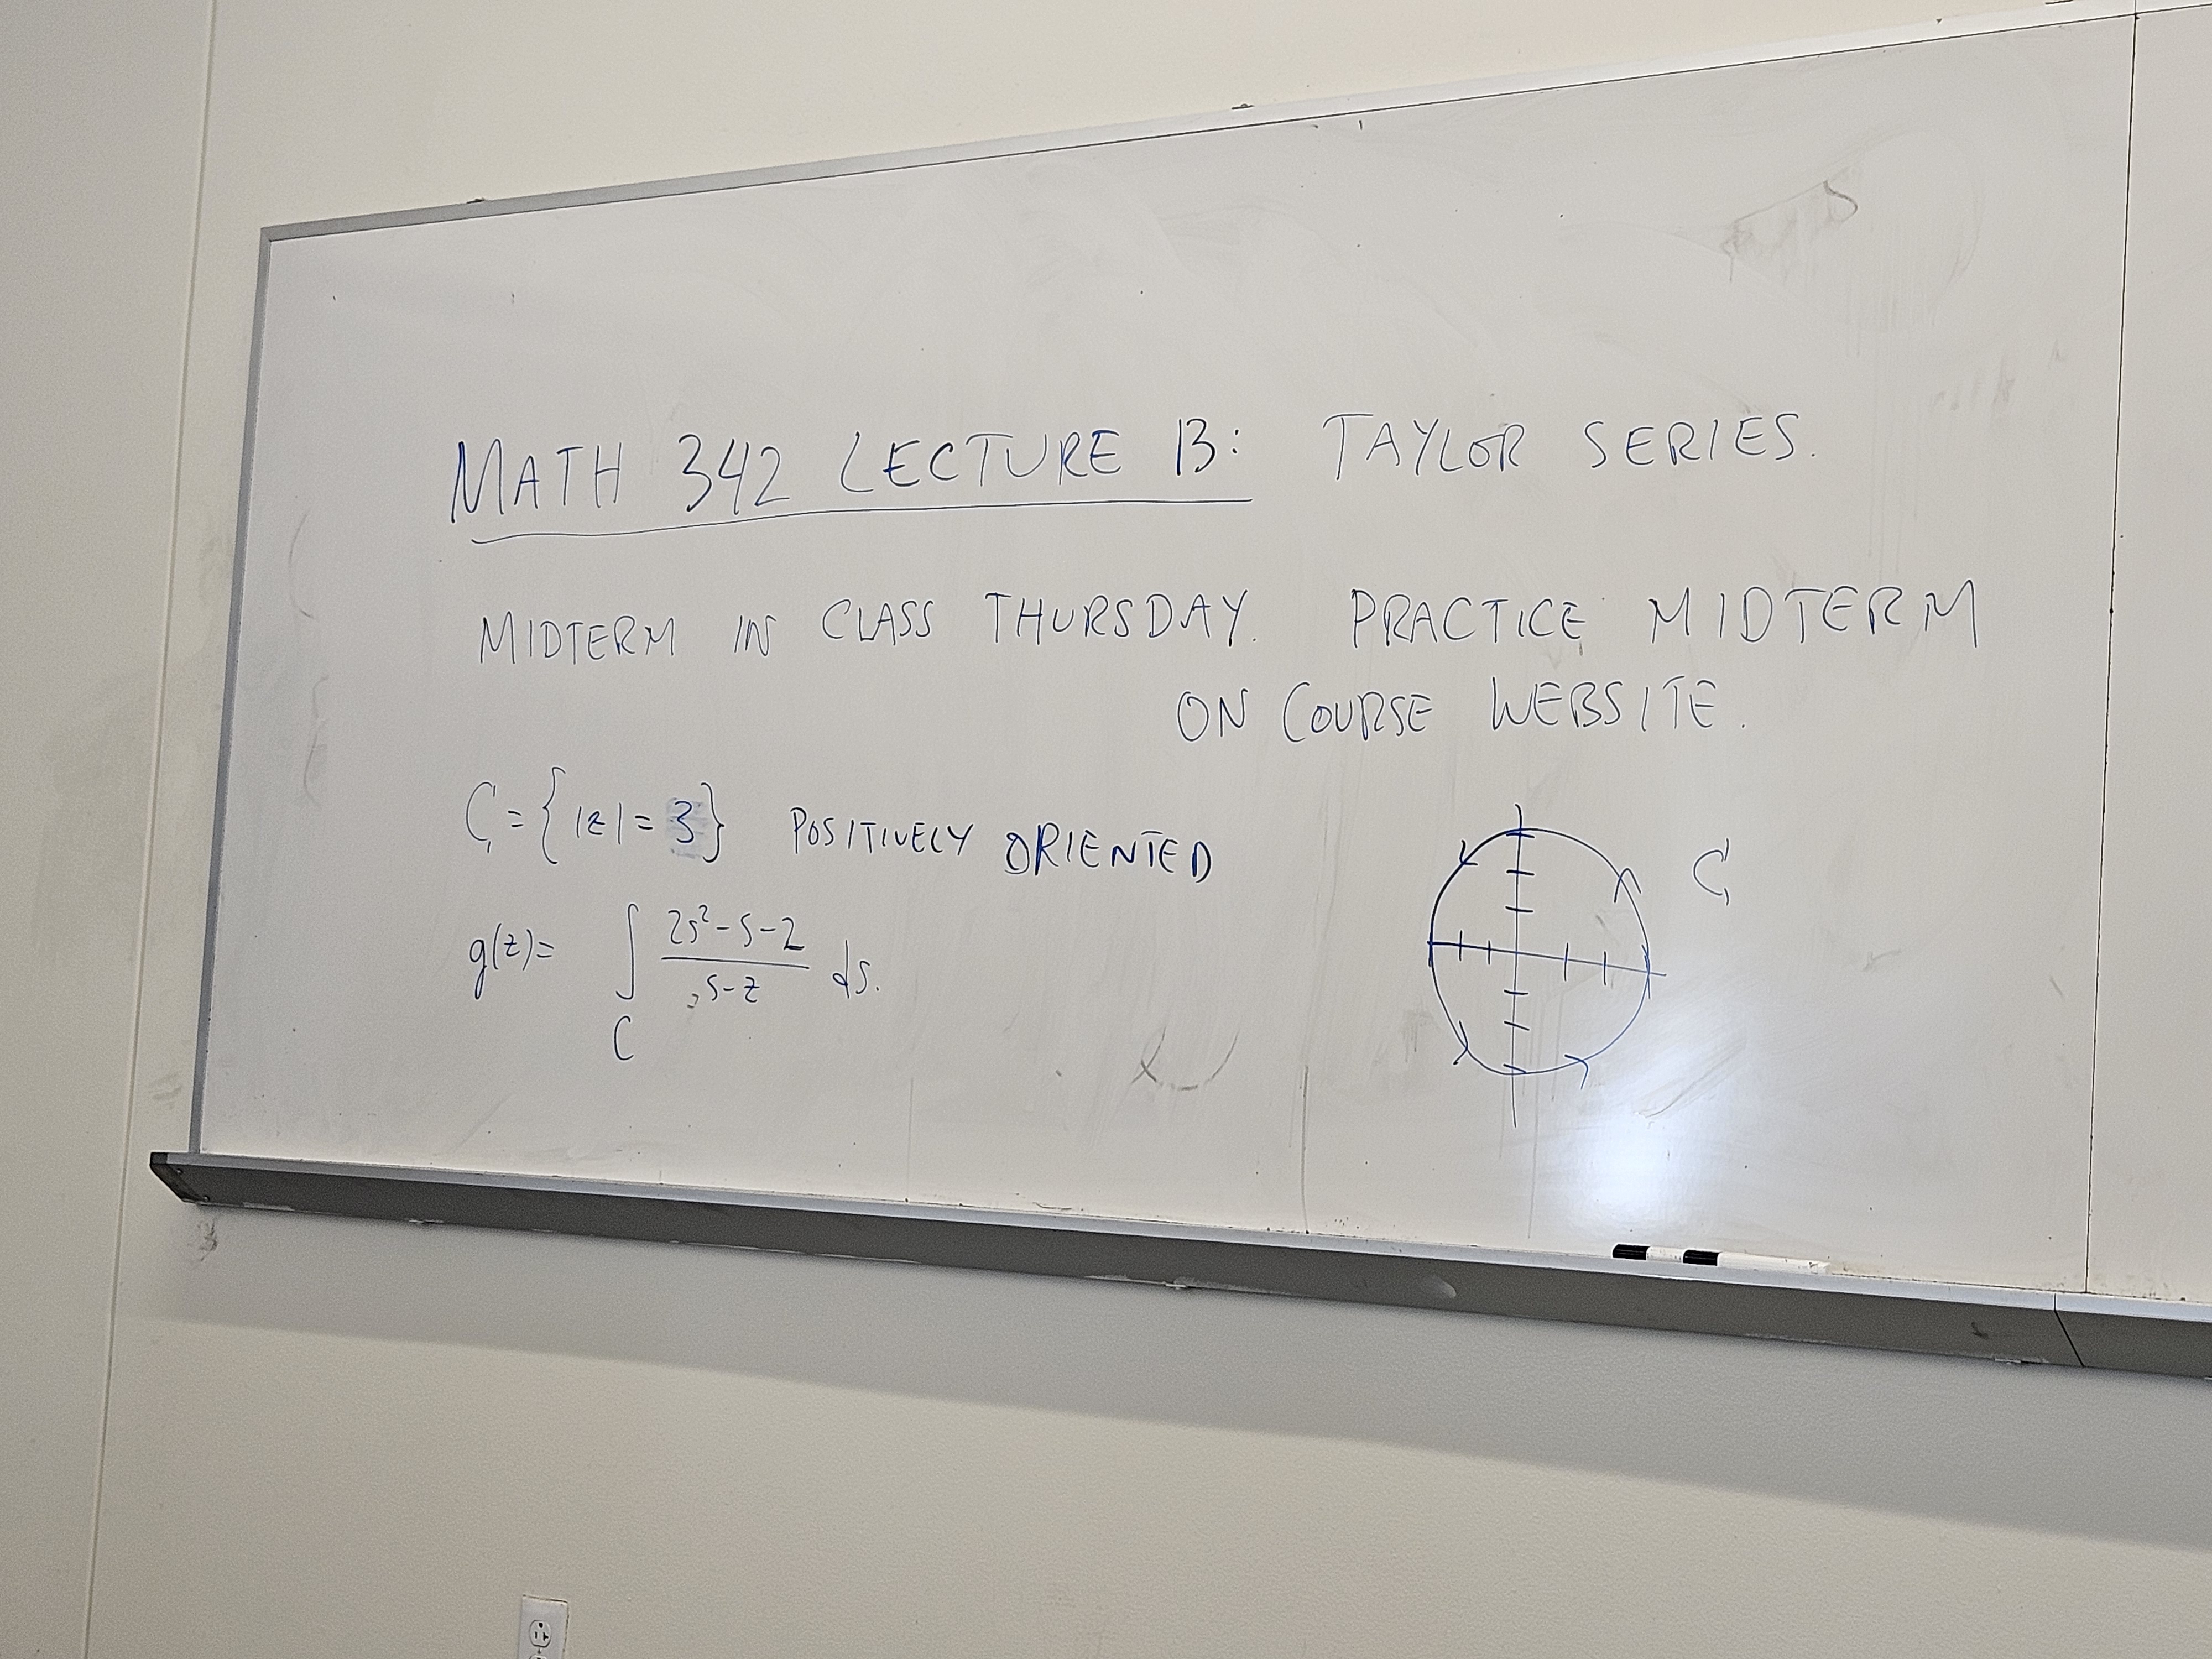 MATH 342 LECTURE 13: TAYLOR SERIES.
MIDTERM IN CLASS THURSDAY. PRACTICE MIDTERM
ON COURSE WEBSITE.
C = {|z| = 3} POSITIVELY ORIENTED
C
g(z) = ∫_C (2s² - s - 2)/(s - z) ds.